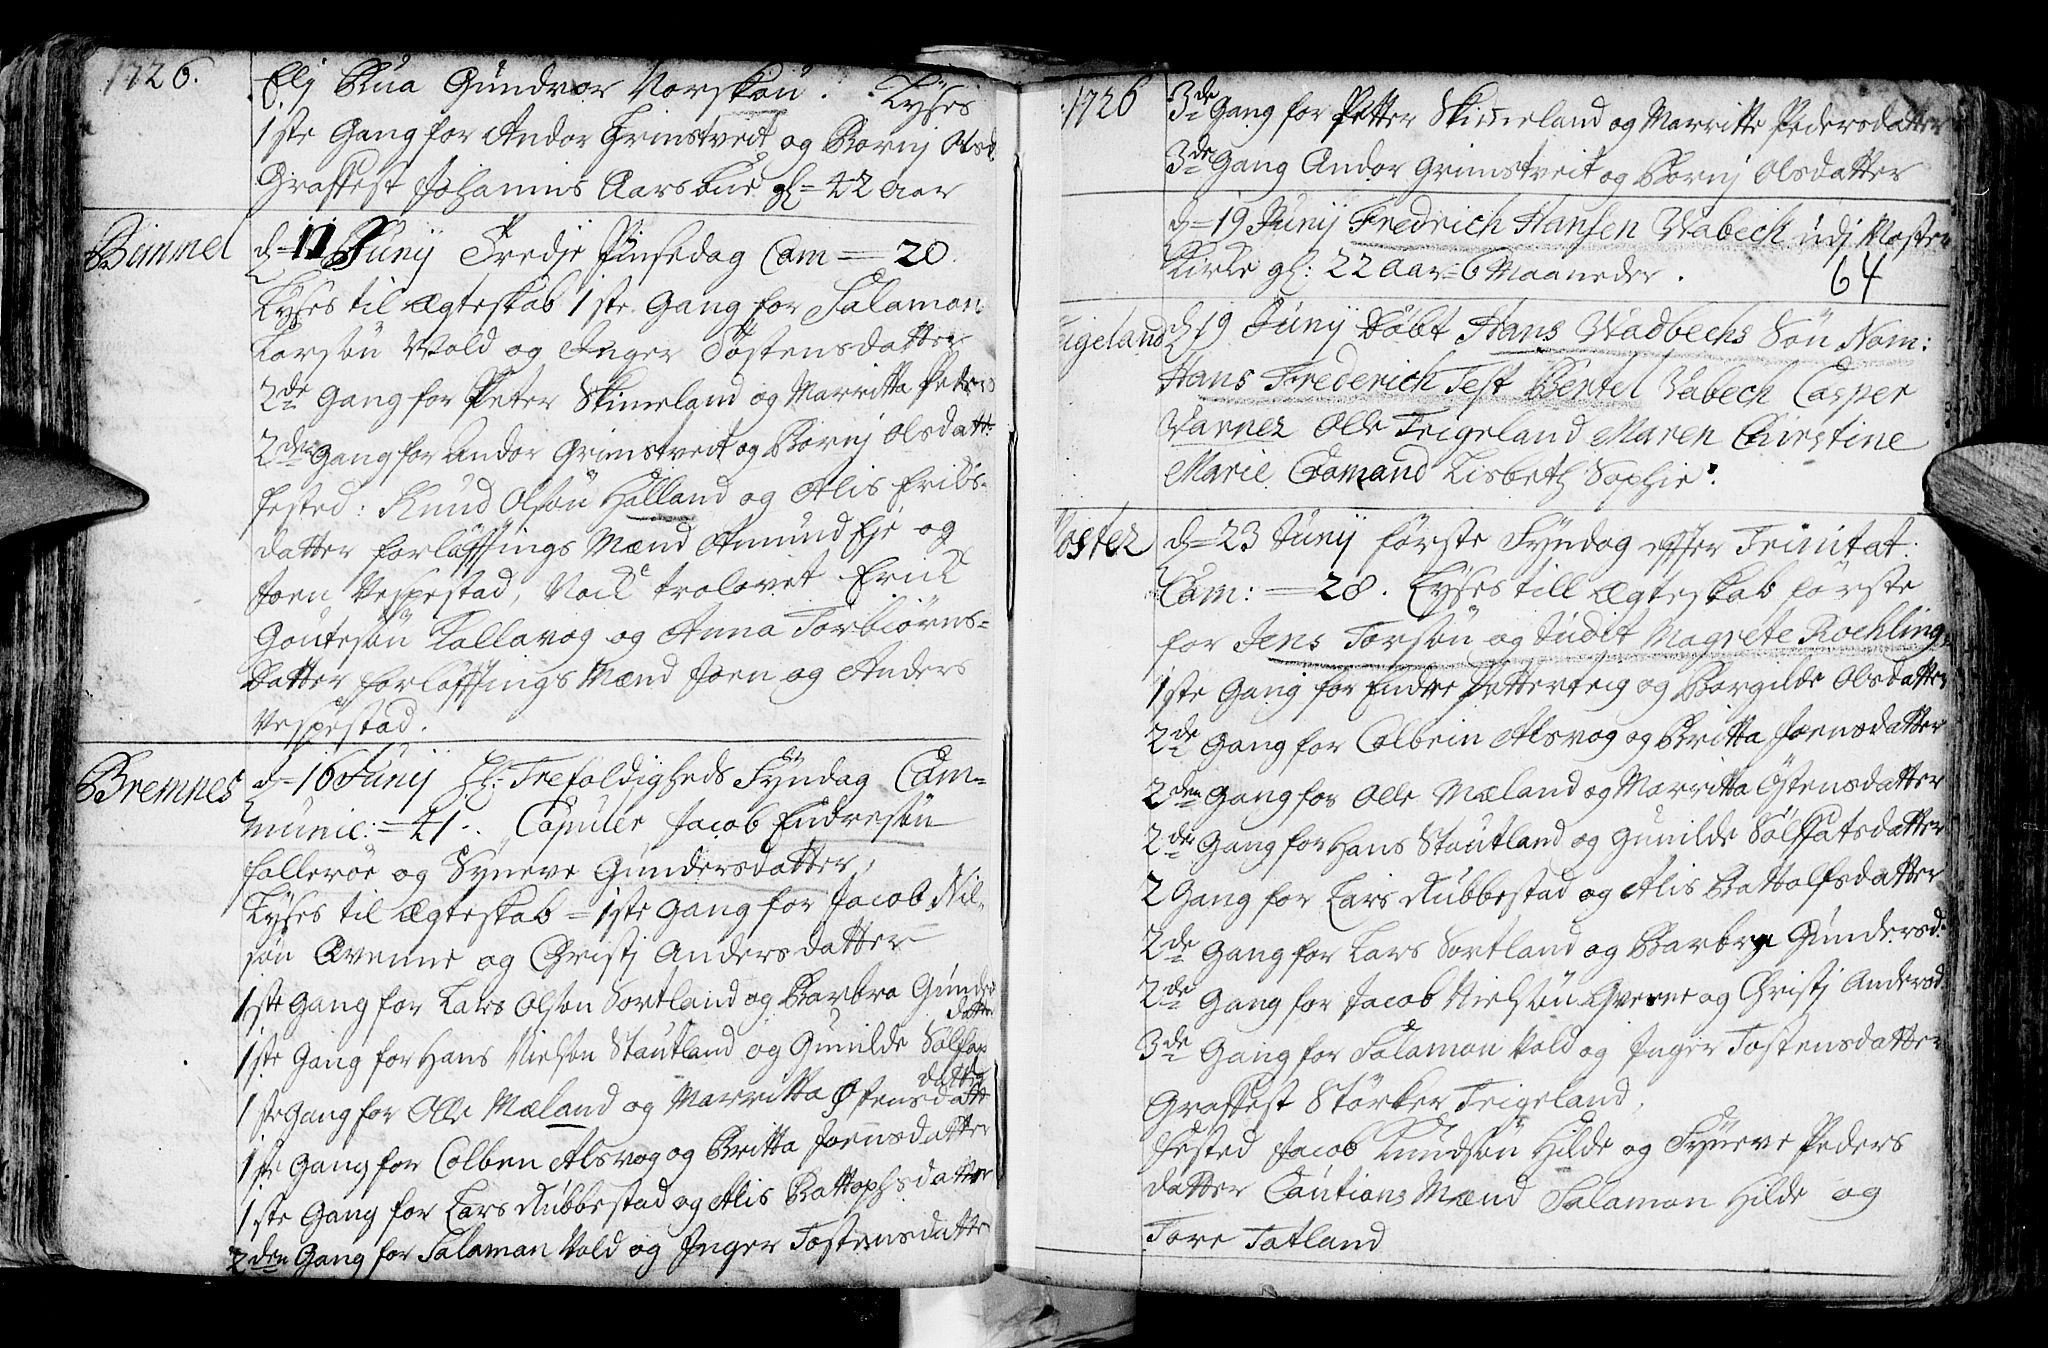 1726.
Elj Bua Gundvor Vorskou. Lyses
1ste Gang for Andor Grimstveit og Bornj Olsd.
Graffest Johannis Aarsbue gl= 42 aar
Bimmel
d= 11 Junij Tredje Pinsedag Com = 20.
Lyses til Ægteskab 1ste Gang for Salamon
Larsøn Wold og Inger Tostensdatter
2de Gang for Peter Skimeland og Marritta Peders
2den Gang for Andor Grimstveit og Bornj Olsdatt:
fested: Knud Olsøn Halland og Alis Eriks=
datter forløffnings Mænd Amund Eje og
Joen Vespestad, Nock trolovet Erick
Goutesøn Kallavog og Anna Torbiørns=
Datter forløffnings Mænd Joen og Anders
Vespestad.
Bremnes
d= 16 Junij H: Trefoldigheds Syndag Com=
munic: = 41. Copuler Jacob Endresøn
Folleröe og Syneve Gundersdatter,
Lyses til Ægteskab = 1ste Gang for Jacob Nil=
søn Qvenne og Christj Andersdatter
1ste Gang for Lars Olsøn Sortland og Barbra Gunders
datter
1ste Gang for Hans Nielsøn Stautland og Gunilde Sølfas
datter
1ste Gang for Olle Mæland og Marritta Østensdatt
1ste Gang for Colben Alsvog og Britta Joensdatter
1ste Gang for Lars Rubbestad og Alis Bottophsdatter
2den Gang for Salamon Vold og Inger Tostensdatter
1726
3de Gang for Petter Skimeland og Marritte Pedersdatter
3de Gang Andor Grimstveit og Bornj Olsdatter
d= 19 Junij Fredrich Hansen Wabech udj Moster
Kirke gl: 22 Aar = 6 Maaneder.
64
Teigeland
d 19 Junij Døbt Hans Wadbechs Søn Nom:
Hans Frederich Test Bertel Vabech Casper
Varner Olle Teigeland Maren Chirstine
Marie Lisbeth Sophie.
Moster
d= 23 Junij første Syndag effter Trinitat:
Com: = 28. Lyses till Ægteskab første
for Jens Torsøn og Judit Magrete Rochling
1ste Gang for Endre Petterteig og Borgilde Olsdatter
2de Gang for Colbein Alsvog og Britta Joensdatter
2den Gang for Olle Mæland og Marritta Østensdatter
2de Gang for Hans Stautland og Gunilde Sølffatsdatter
2 Gang for Lars Rubbestad og Alis Battolfsdatter
2de Gang for Lars Sortland og Barbra Gundersd.
2de Gang for Jacob Nielsøn Qvenne og Christj Andersd.
3de Gang for Salamon Vold og Inger Tostensdatter
Graffest Størker Teigeland,
Fested Jacob Knudsøn Hilde og Syneve Peders
datter Cautions Mænd Salamon Hilde og
Tore Totland